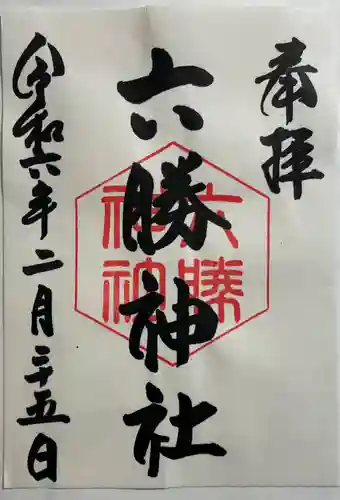 奉拝
六勝神社
六勝神社
令和六年二月二十五日